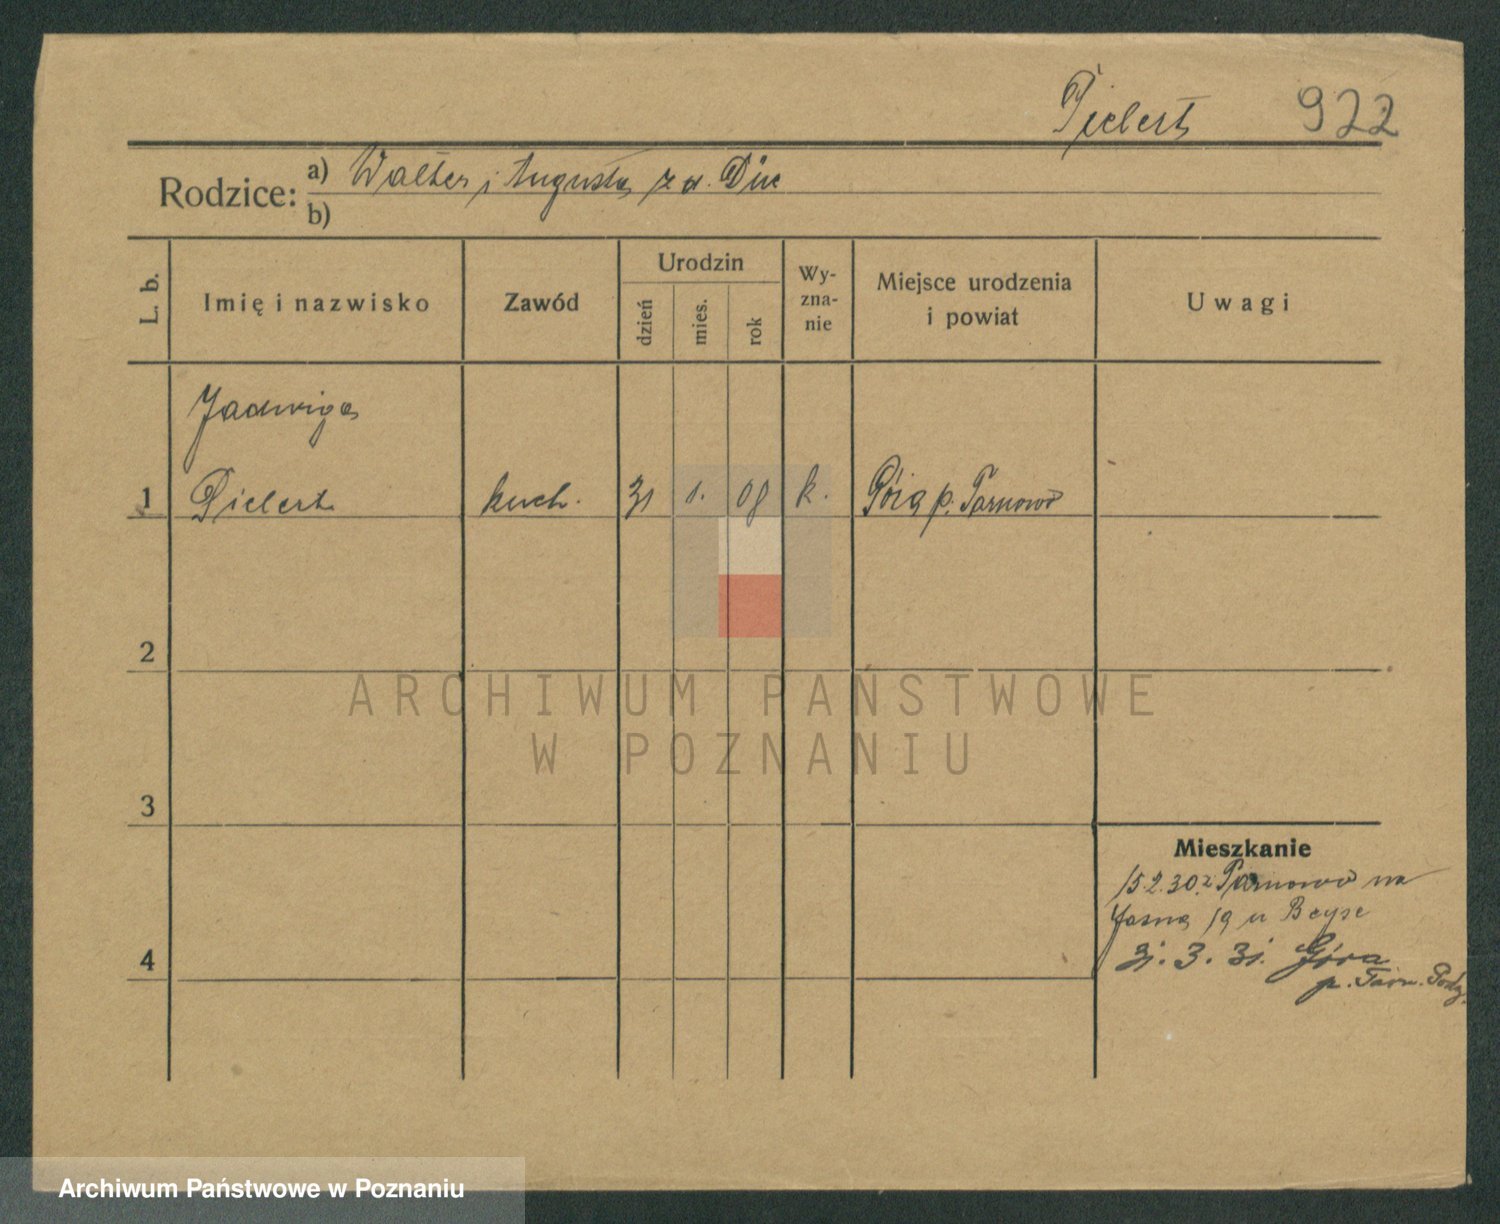 Pielert 922
Rodzice: a) Walter i Augusta z d.
b)
L. b.
Imię i nazwisko
Zawód
Urodzin
dzień
mies.
rok
Wy-
zna-
nie
Miejsce urodzenia
i powiat
Uwagi
Jadwiga
1 Pielert kuch. 31 1. 08 k. p. Tarnowo
2
3
4
Mieszkanie
15.2.30 z Tarnowo na
Jasna 19 u
31. 3. 31. Góra
p. Tarn. Podg.
ARCHIWUM PAŃSTWOWE
W POZNANIU
Archiwum Państwowe w Poznaniu